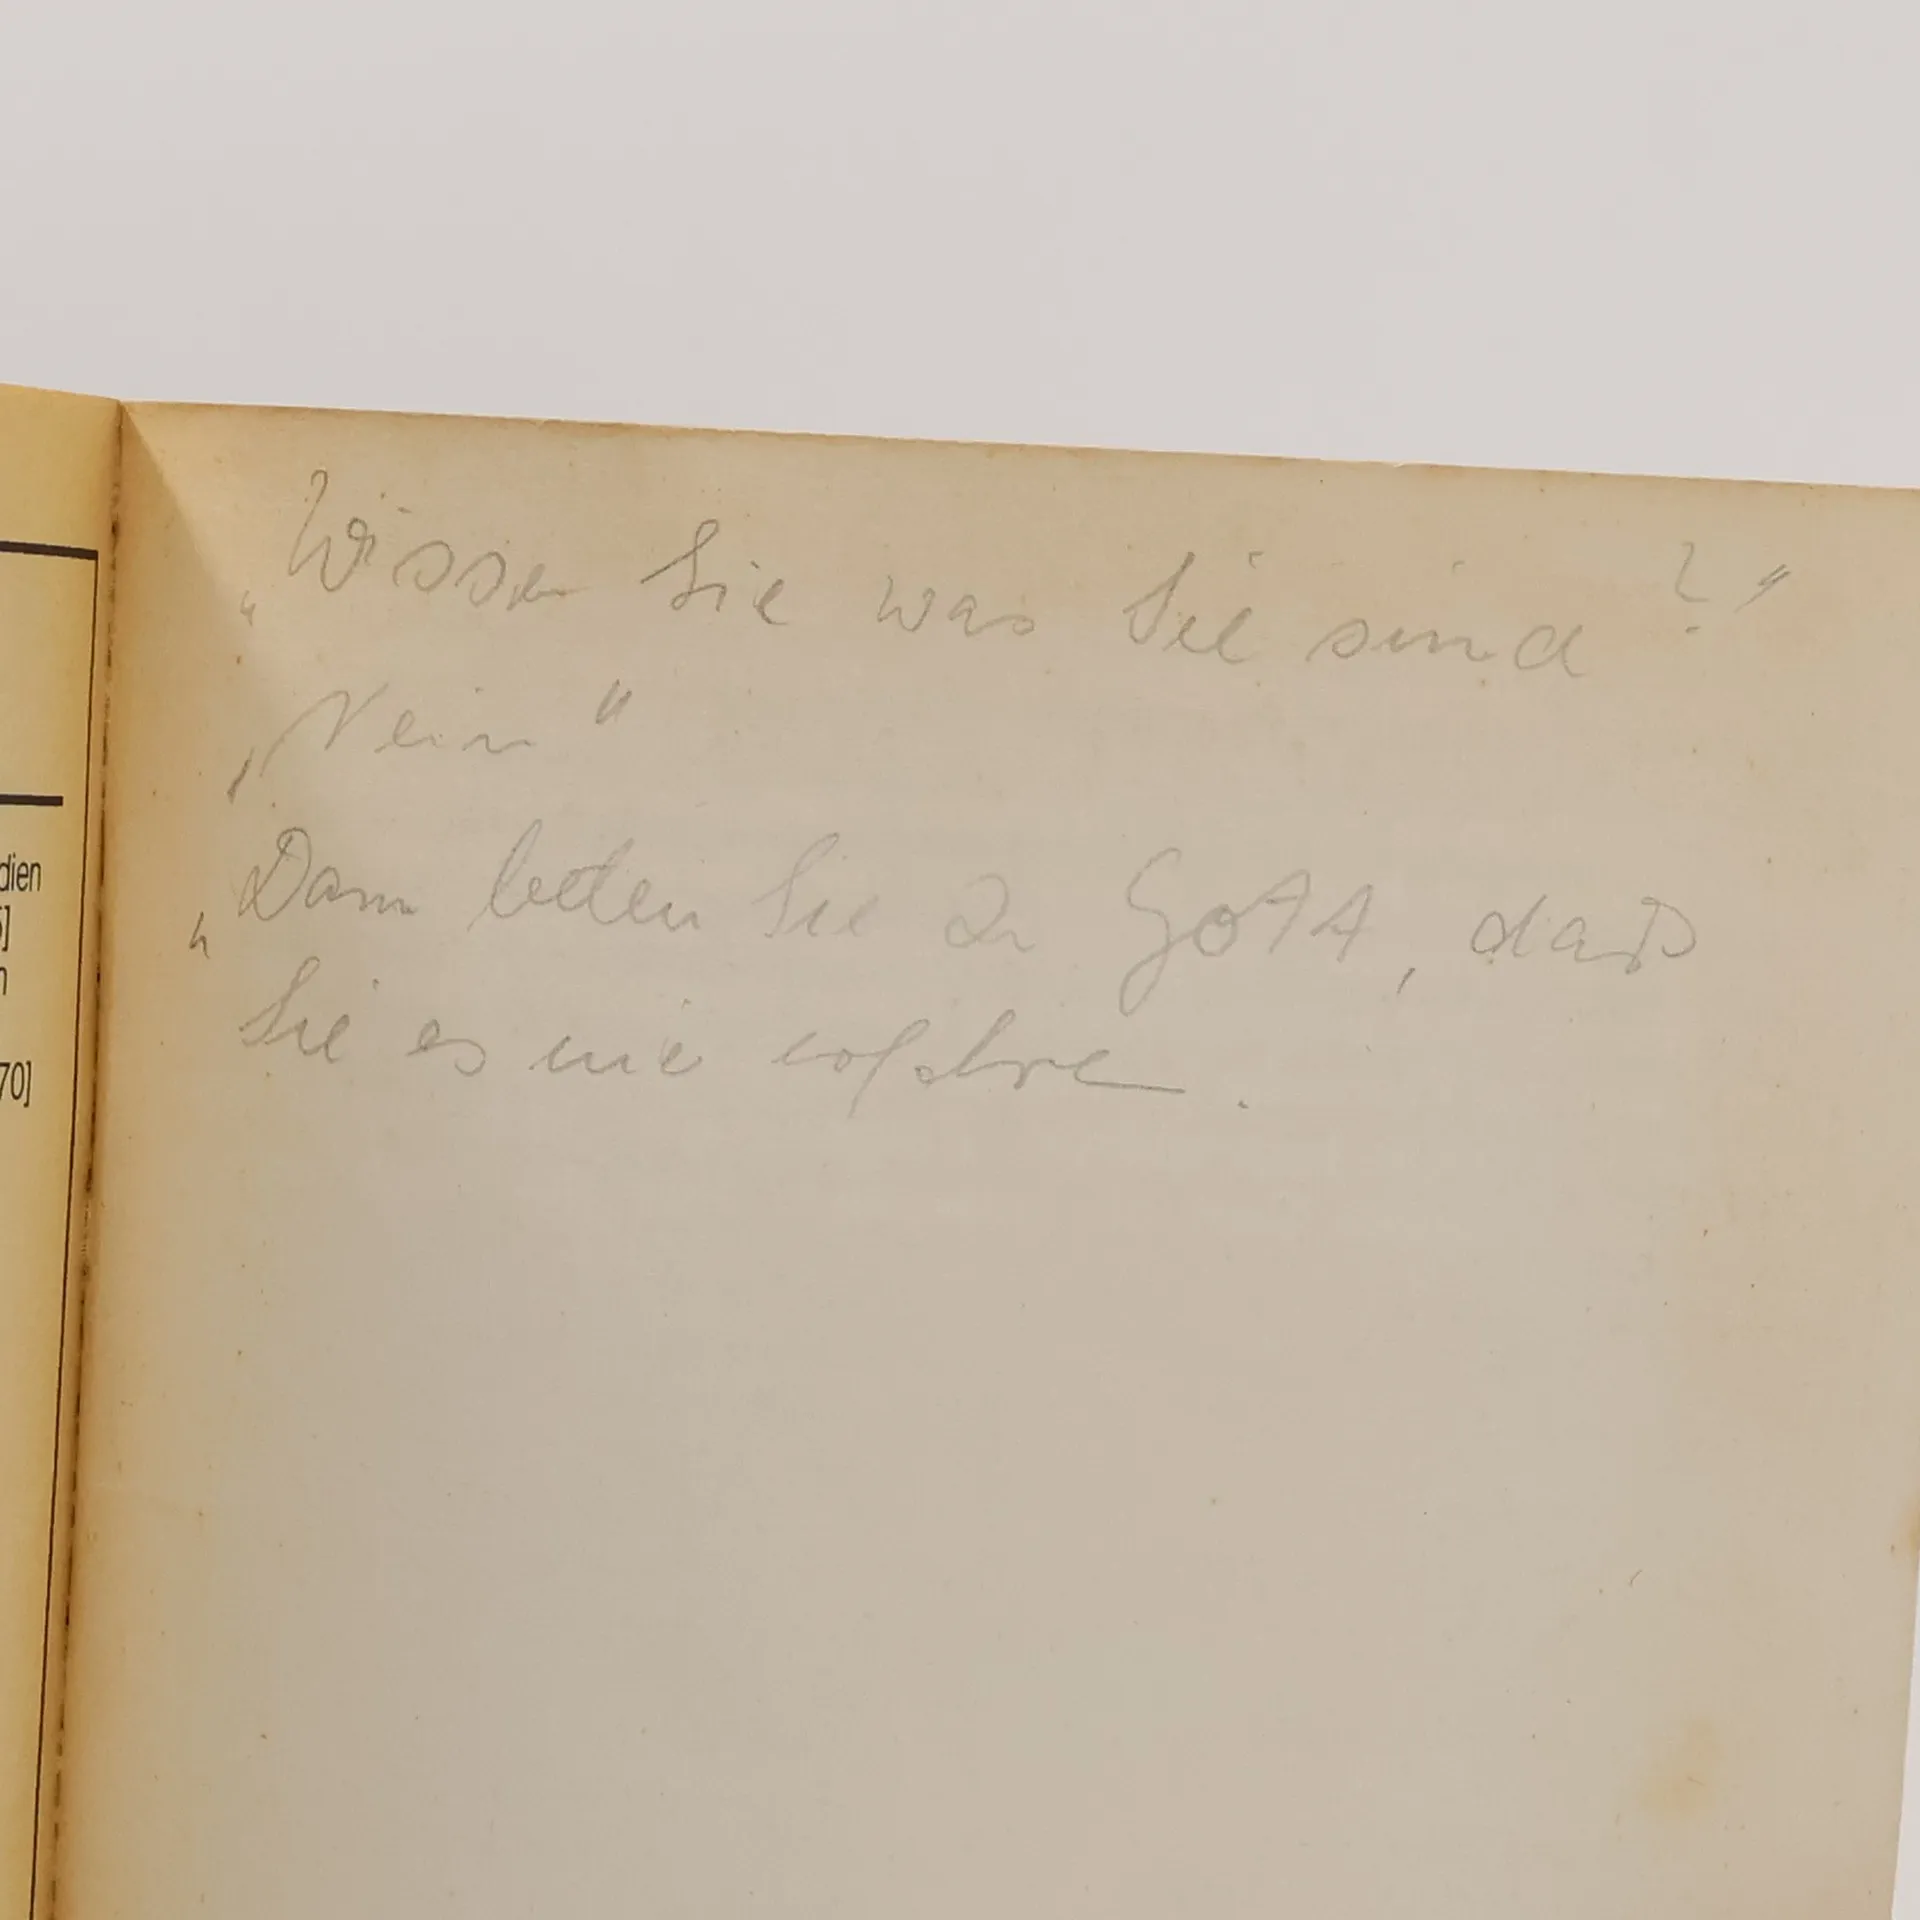 dien
5]
n
70]
„Wissen Sie was Sie sind?"
„Nein"
„Dann beten Sie zu Gott, daß
Sie es nie erfahren.